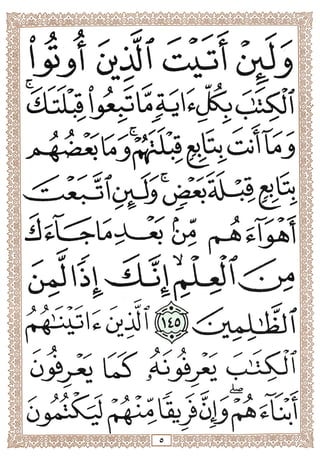 وَلَئِنْ أَتَيْتَ ٱلَّذِينَ أُوتُوا۟
ٱلْكِتَٰبَ بِكُلِّ ءَايَةٍ مَّا تَبِعُوا۟ قِبْلَتَكَ ۚ
وَمَآ أَنتَ بِتَابِعٍ قِبْلَتَهُمْ ۚ وَمَا بَعْضُهُم
بِتَابِعٍ قِبْلَةَ بَعْضٍ ۚ وَلَئِنِ ٱتَّبَعْتَ
أَهْوَآءَهُم مِّنۢ بَعْدِ مَا جَآءَكَ
مِنَ ٱلْعِلْمِ ۙ إِنَّكَ إِذًا لَّمِنَ
ٱلظَّٰلِمِينَ ١٤٥ ٱلَّذِينَ ءَاتَيْنَٰهُمُ
ٱلْكِتَٰبَ يَعْرِفُونَهُۥ كَمَا يَعْرِفُونَ
أَبْنَآءَهُمْ ۖ وَإِنَّ فَرِيقًا مِّنْهُمْ لَيَكْتُمُونَ
٥